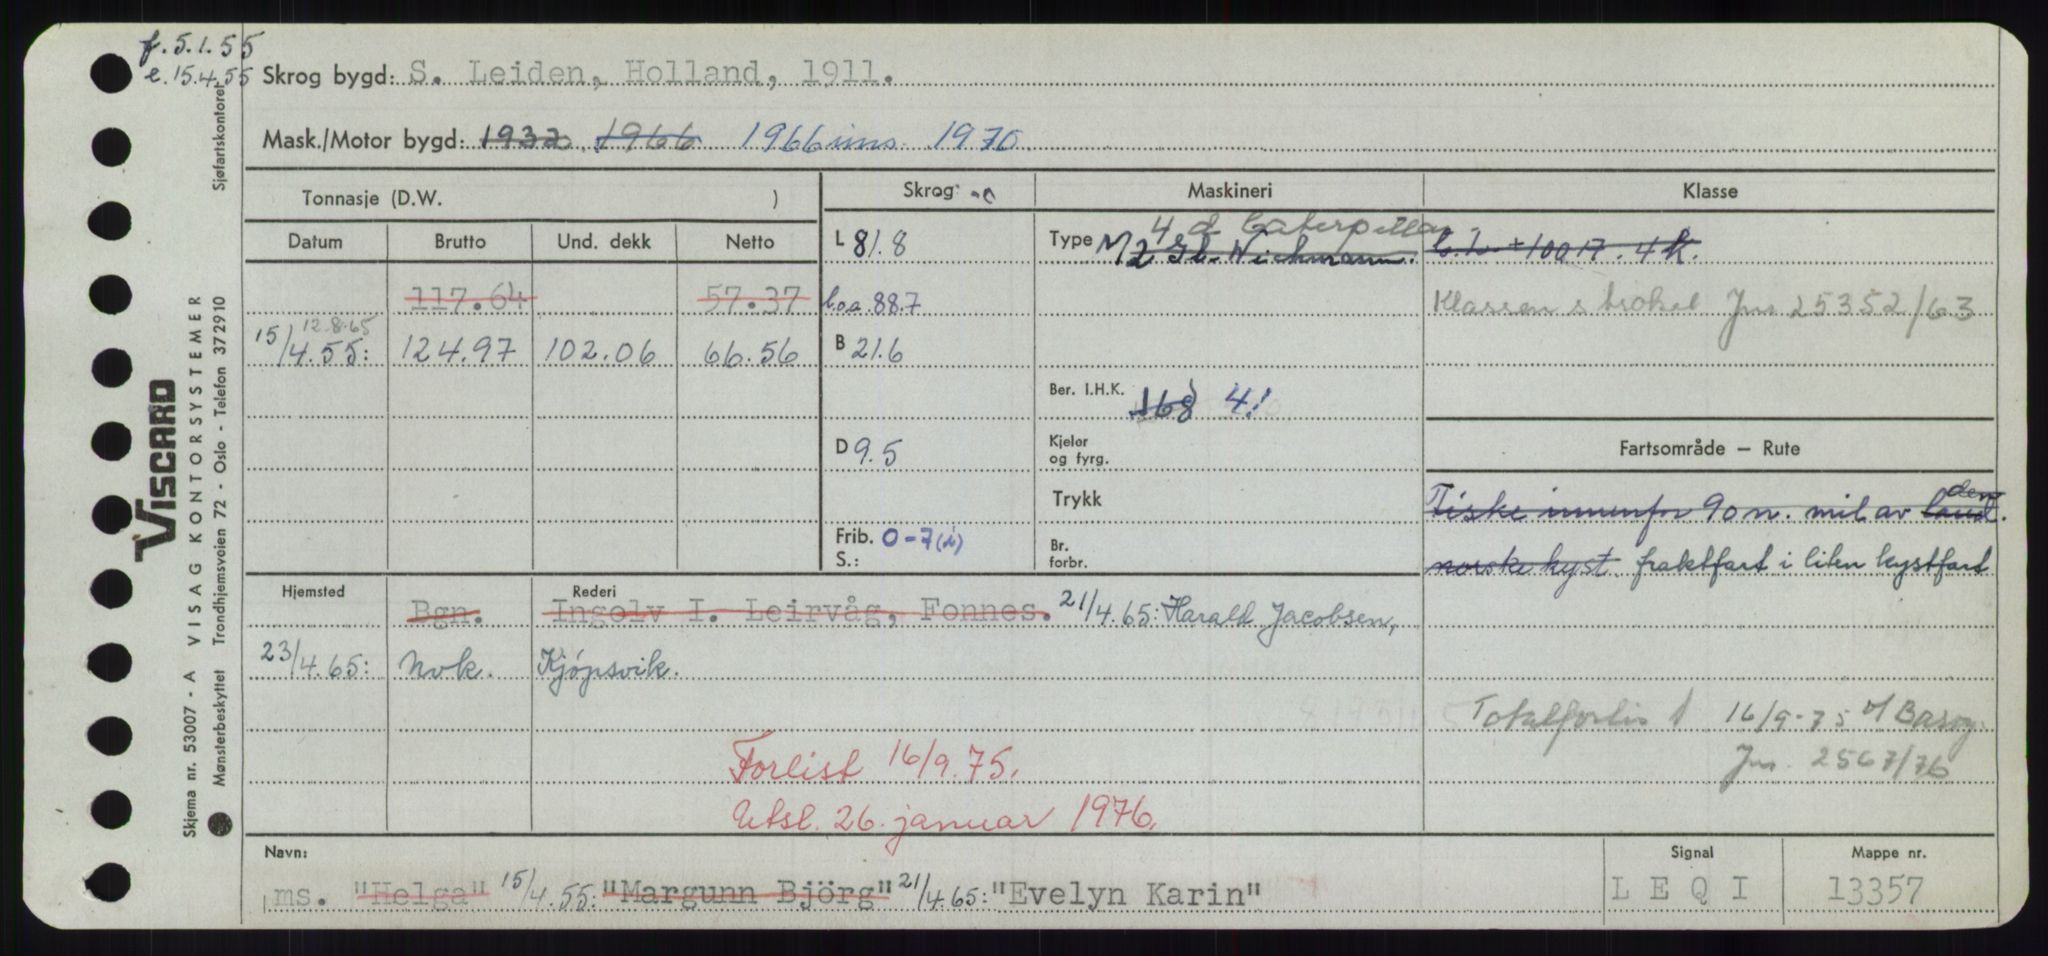 f. 5.1.55
e. 15.4.55
Skrog bygd: S. Leiden, Holland, 1911.
Mask./Motor bygd: 1932 1966 1966 ins. 1970
Tonnasje (D.W. )
Skrog:
Maskineri
Klasse
Datum Brutto Und. dekk Netto
L 81.8
Type M 4 d Caterpillar
2 Gl. Wichmann.
+100 17. 4 K.
117.64 57.37
l.o.a. 88.7
Klassen strøket Jnr 25352/63
12.8.65
15/4.55: 124.97 102.06 66.56
B 21.6
Ber. I.H.K. 168 41
D 9.5
Kjeler og fyrg.
Fartsområde — Rute
Trykk
Fiske innenfor 90 n. mil av land. den
Frib. 0-7(i)
S.:
Br. forbr.
norske kyst. fraktfart i liten kystfart
Hjemsted
Rederi
Bgn. Ingolv I. Leirvåg, Fonnes. 21/4.65: Harald Jacobsen,
23/4.65: Nvk. Kjøpsvik.
Totalforlis 16/9-75 v/
Jnr. 2567/76
Forlist 16/9.75.
Utsl. 26. januar 1976.
Navn:
ms. "Helga" 15/4.55: "Margunn Björg" 21/4.65: "Evelyn Karin"
Signal
L E Q I
Mappe nr.
13357
Sjøfartskontoret
VISCARD
VISAG KONTORSYSTEMER
Trondhjemsveien 72 - Oslo - Telefon 372910
Skjema nr. 53007 - A
Mønsterbeskyttet